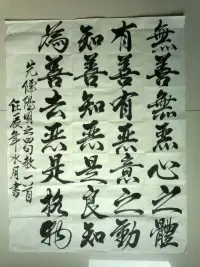 無善無恶心之體
有善有恶意之動
知善知恶是良知
為善去恶是格物
先儒陽明之四句教一首
辰年月書